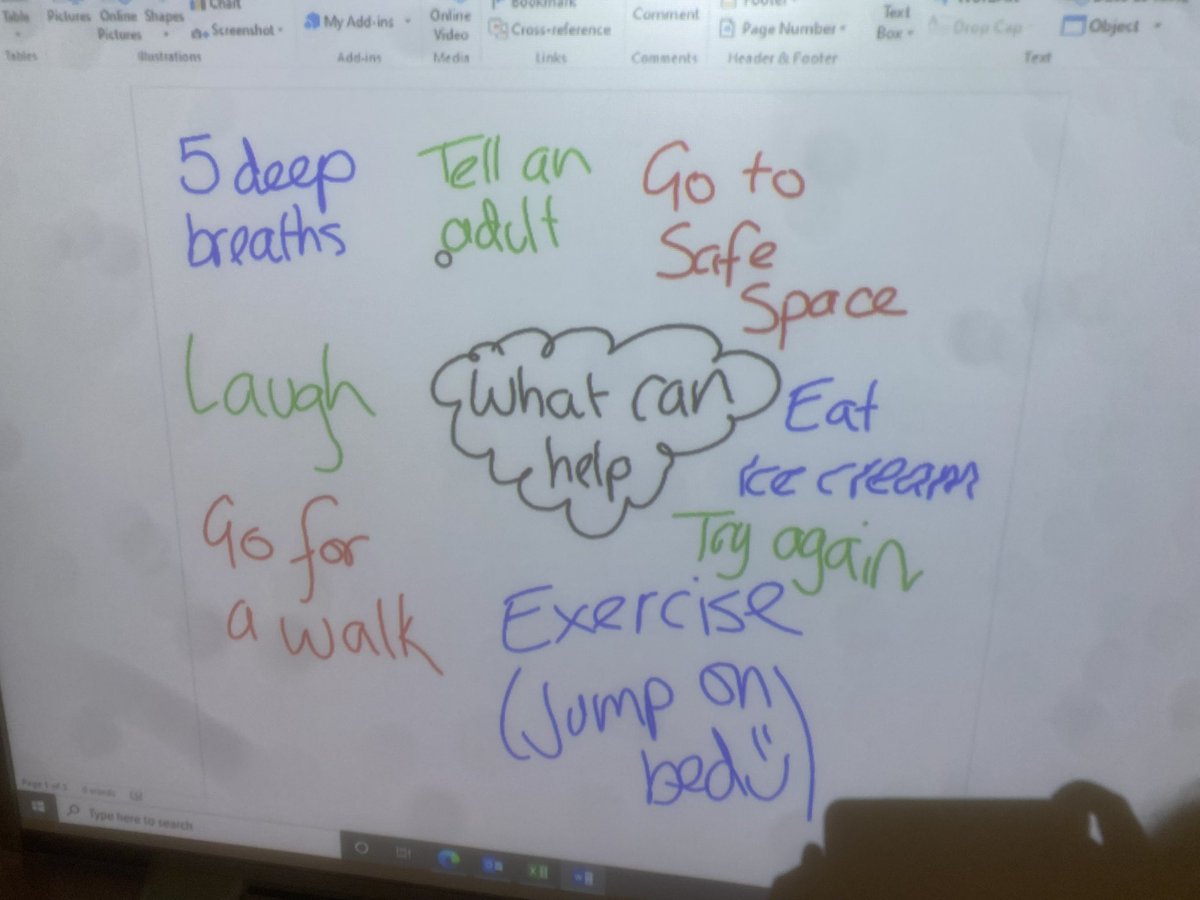 Table
Pictures
Online
Pictures
Shapes
Chart
Screenshot
My Add-ins
Online
Video
Bookmark
Cross-reference
Comment
Footer
Page Number
Text
Box
Drop Cap
Object
Tables
Illustrations
Add-ins
Media
Links
Comments
Header & Footer
Text
5 deep
breaths
Tell an
adult
Go to
Safe
Space
Laugh
What can
help
Eat
ice cream
Go for
a walk
Try again
Exercise
(Jump on
bed)
Page 1 of
0 words
Type here to search